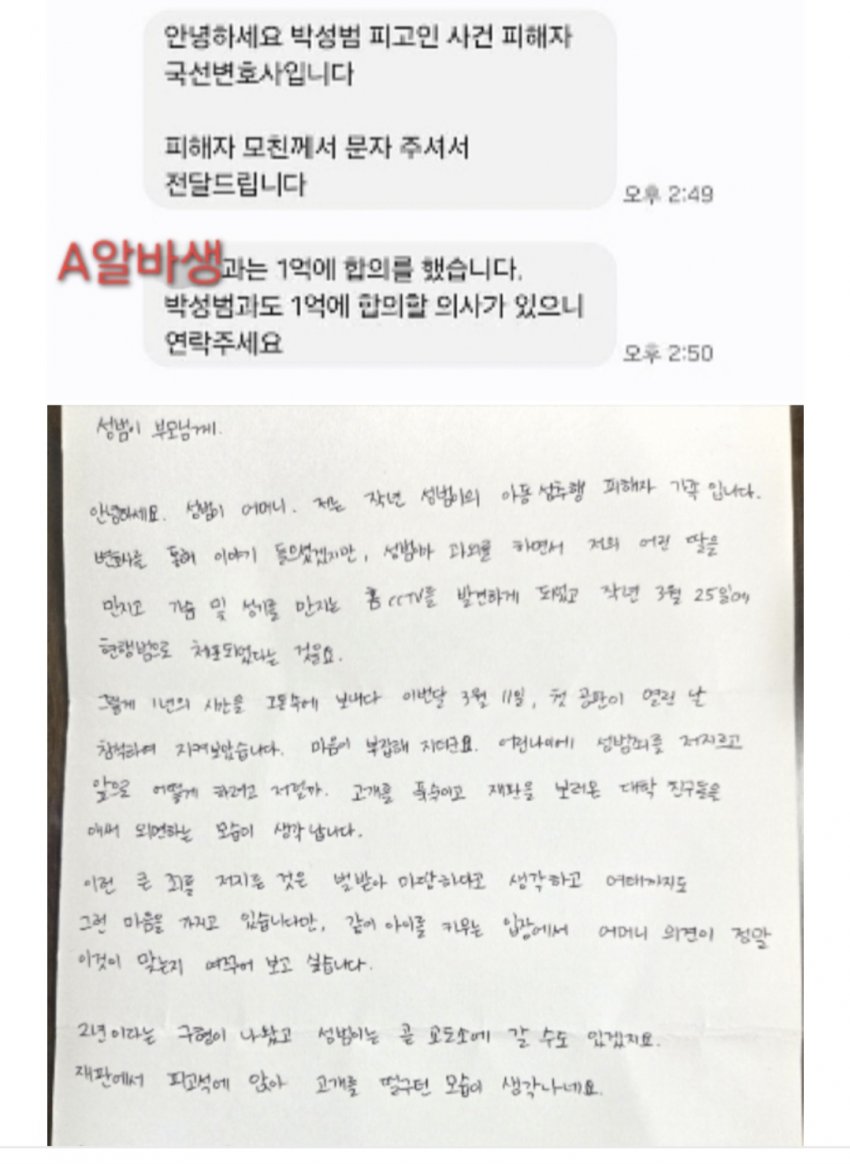 안녕하세요 박성범 피고인 사건 피해자
국선변호사입니다
피해자 모친께서 문자 주셔서
전달드립니다
오후 2:49
A알바생과는 1억에 합의를 했습니다.
박성범과도 1억에 합의할 의사가 있으니
연락주세요
오후 2:50
성범이 부모님께.
안녕하세요. 성범이 어머니. 저는 작년 성범이의 아동 성추행 피해자 가족 입니다.
변호사를 통해 이야기 들으셨겠지만, 성범이가 과외를 하면서 저희 어린 딸을
만지고 가슴 및 성기를 만지는 홈 CCTV를 발견하게 되었고 작년 3월 25일에
현행범으로 체포되었다는 것을요.
그렇게 1년의 시간을 고통속에 보내다 이번달 3월 11일, 첫 공판이 열린 날
참석하여 지켜보았습니다. 마음이 복잡해 지더군요. 어린나이에 성범죄를 저지르고
앞으로 어떻게 하려고 저럴까. 고개를 푹숙이고 재판을 보러온 대학 친구들을
애써 외면하는 모습이 생각 납니다.
이런 큰 죄를 저지른 것은 벌받아 마땅하다고 생각하고 여태까지도
그런 마음을 가지고 있습니다만, 같이 아이를 키우는 입장에서 어머니 의견이 정말
이것이 맞는지 여쭈어 보고 싶습니다.
2년이라는 구형이 나왔고 성범이는 곧 교도소에 갈 수도 있겠지요.
재판에서 피고석에 앉아 고개를 떨구던 모습이 생각나네요.